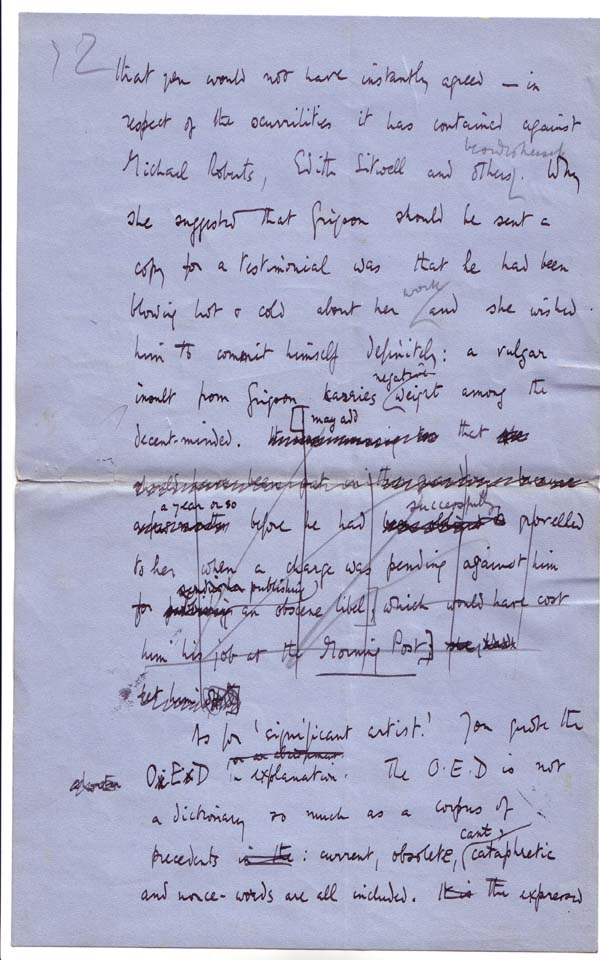 2
that you would not have instantly agreed — in
respect of the scurrilities it has contained against
Michael Roberts, Edith Sitwell and others. Why
she suggested that Grigson should be sent a
copy for a testimonial was that he had been
blowing hot & cold about her work and she wished
him to commit himself definitely: a vulgar
insult from Grigson carries negative weight among the
decent-minded. [I may add that
a year or so before he had successfully grovelled
to her when a charge was pending against him
for publishing an obscene libel, which would have cost
him his job at the Morning Post]
As for 'significant artist.' You quote the
O.E.D in explanation. The O.E.D is not
a dictionary so much as a corpus of
precedents : current, obsolete, cant, cataphretic
and nonce-words are all included. The expressed